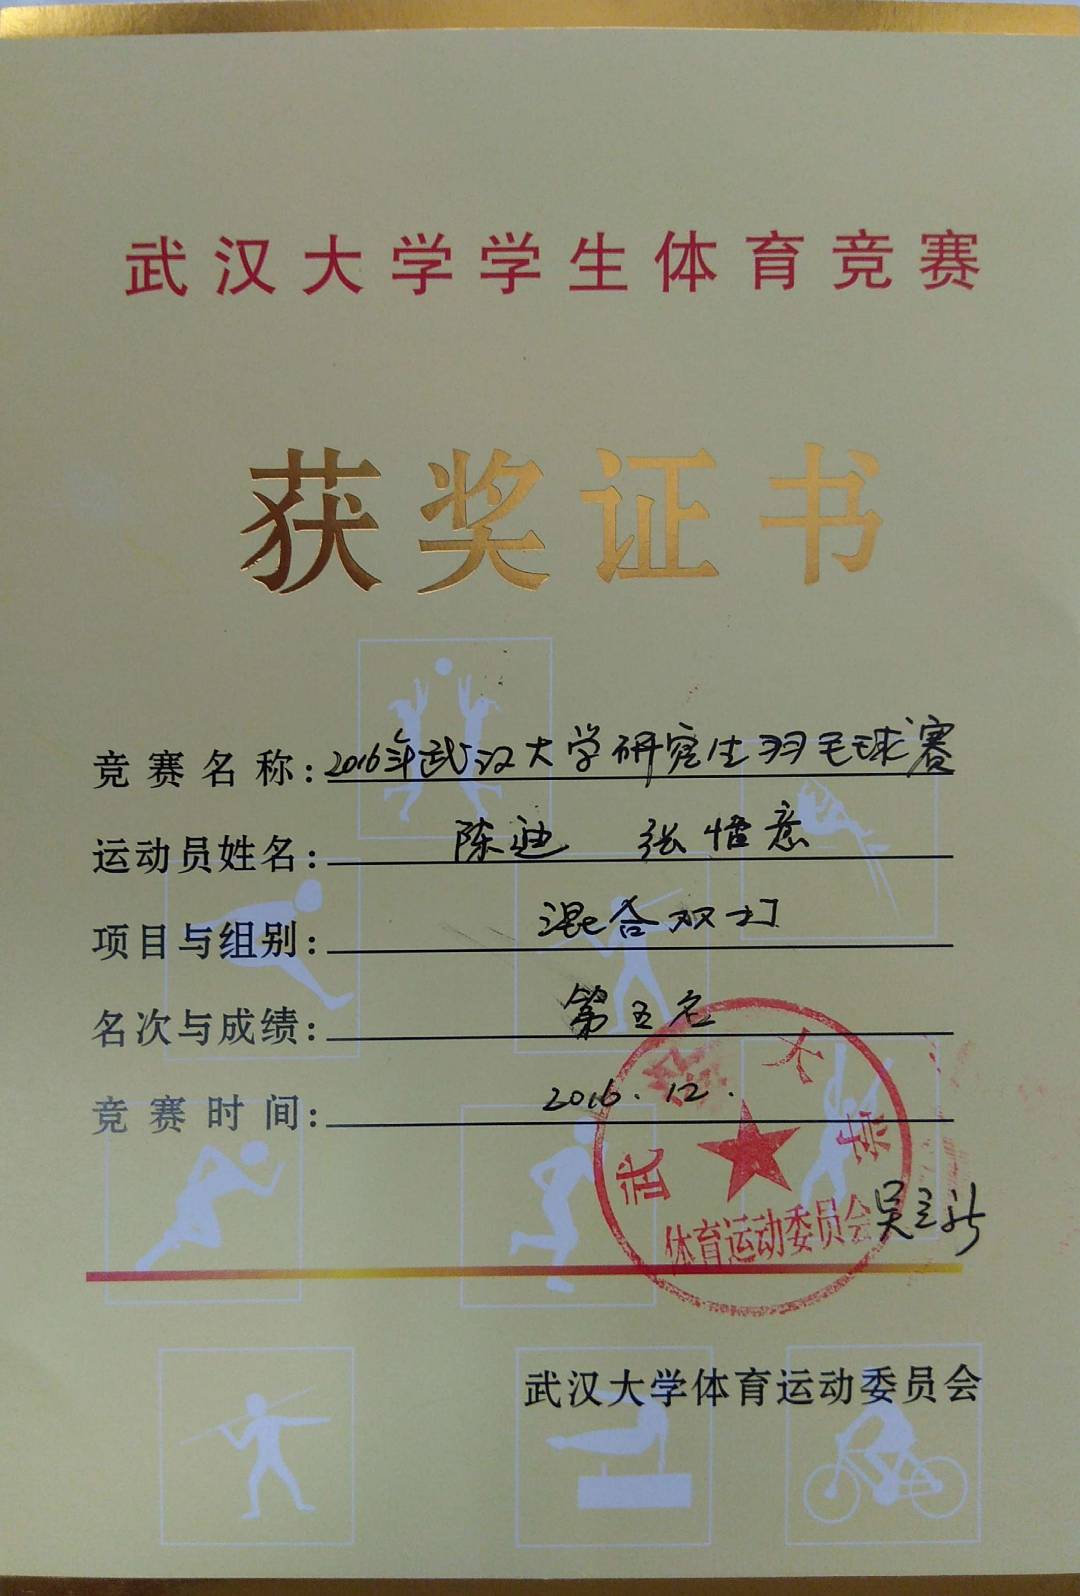 武汉大学学生体育竞赛
获奖证书
竞赛名称：2016年武汉大学研究生羽毛球赛
运动员姓名：陈 张惜意
项目与组别：混合双打
名次与成绩：第五名
竞赛时间：2016.12.
武汉大学
体育运动委员会
吴立新
武汉大学体育运动委员会